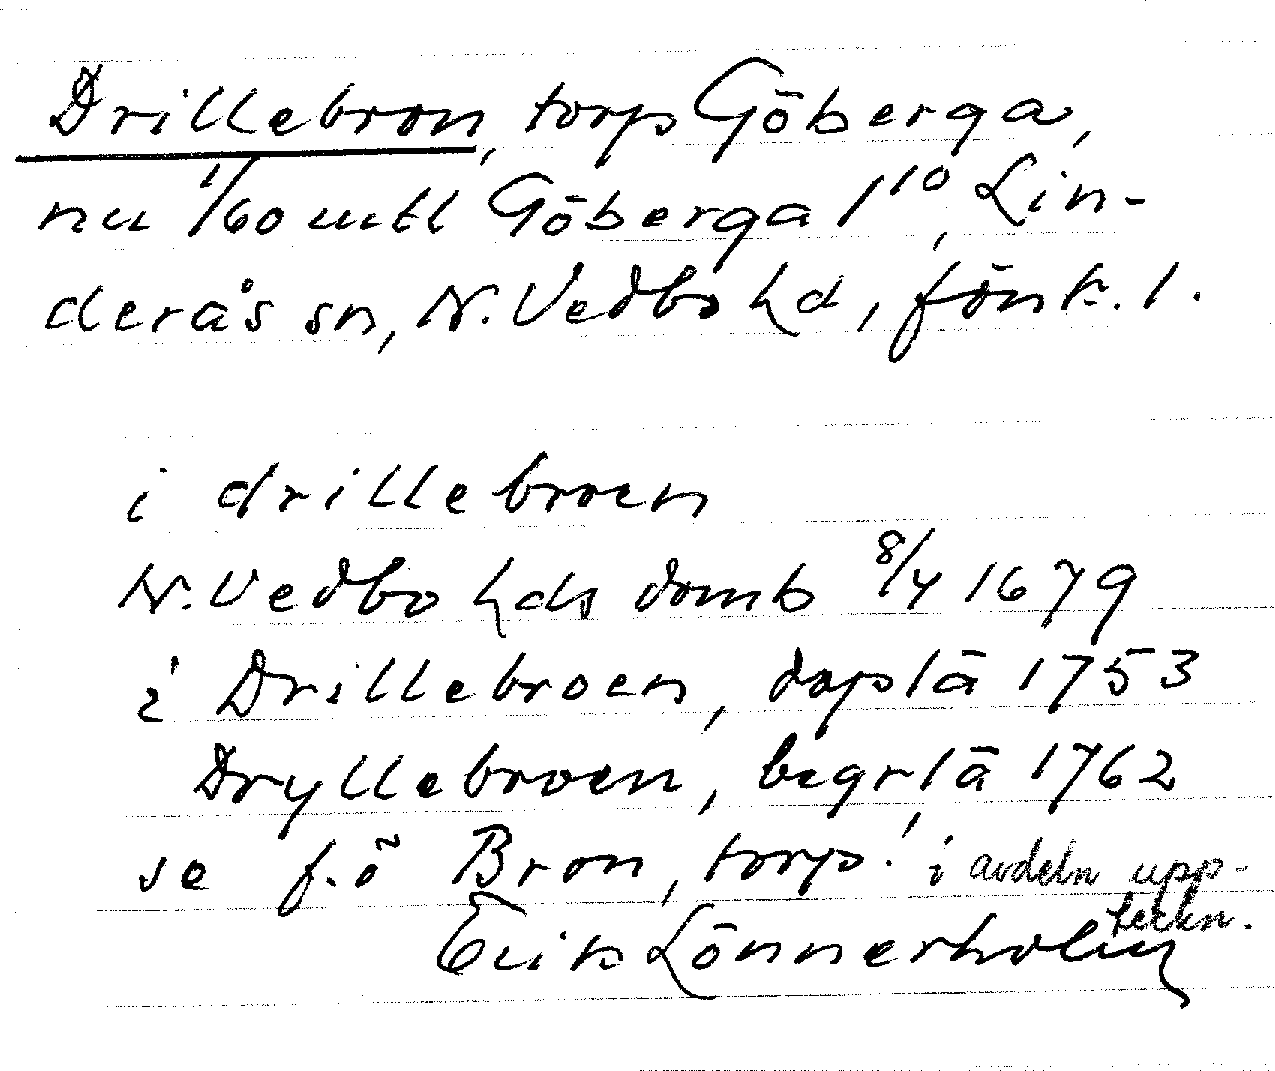 Drillebron, torp Göberga,
nu 1/60 mtl Göberga 1¹⁰, Lin-
derås sn, N. Vedbo hd, Jönk. l.
i drillebroen
N. Vedbo hds domb 8/4 1679
i Drillebroen, doplä 1753
Dryllebroen, begrlä 1762
se f. ö Bron, torp! i avdeln upp-
teckn.
Erik Lönnerholm